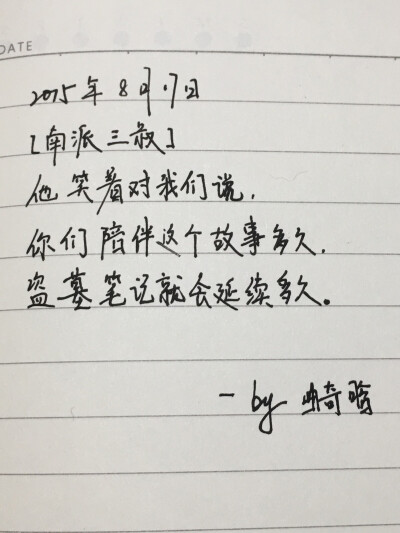 DATE
2015年8月17日
[南派三叔]
他笑着对我们说，
你们陪伴这个故事多久，
盗墓笔记就会延续多久。
－by 崎晗